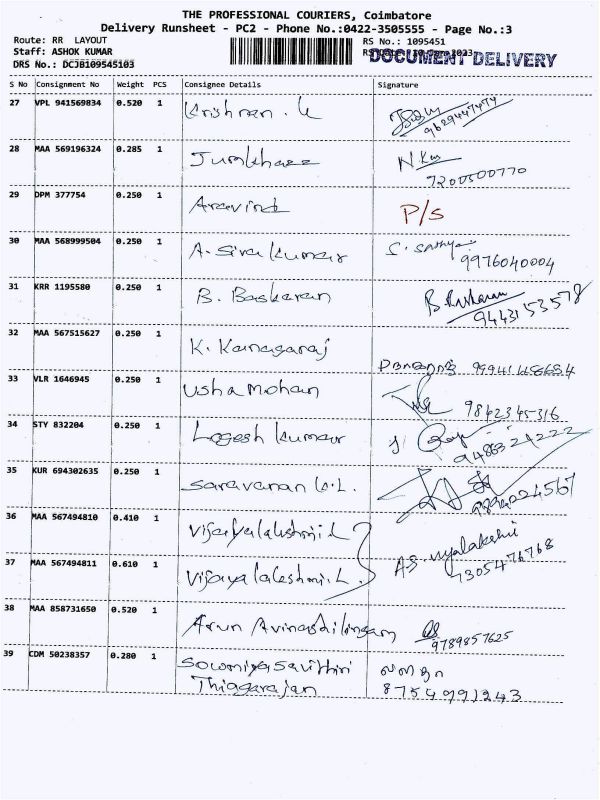 THE PROFESSIONAL COURIERS, Coimbatore
Delivery Runsheet - PC2 - Phone No.:0422-3505555 - Page No.:3
Route: RR LAYOUT
RS No.: 1095451
Staff: ASHOK KUMAR
DOCUMENT DELIVERY
DRS No.: DCJB109545103
S No Consignment No Weight PCS Consignee Details Signature
27 VPL 941569834 0.520 1 Krishnan . K
9629447474
28 MAA 569196324 0.285 1
N.
7200500770
29 DPM 377754 0.250 1 Aravind P/S
30 MAA 568999504 0.250 1 A. Sivakumar S. Sathya
9976040004
31 KRR 1195580 0.250 1 B. Baskaran B. Baskaran
9443153578
32 MAA 567515627 0.250 1 K. Kanagaraj
33 VLR 1646945 0.250 1 Usha Mohan
9842345316
34 STY 832204 0.250 1 Logesh Kumar
9486324222
35 KUR 694302635 0.250 1 Saravanan K.L.
36 MAA 567494810 0.410 1 Vijayalakshmi.L
37 MAA 567494811 0.610 1 Vijayalakshmi.L.
7305476768
38 MAA 858731650 0.520 1 Arun Avinashilingam
9789857625
39 CDM 50238357 0.280 1 Sowmiya Savithiri
Thiagarajan 8754991243